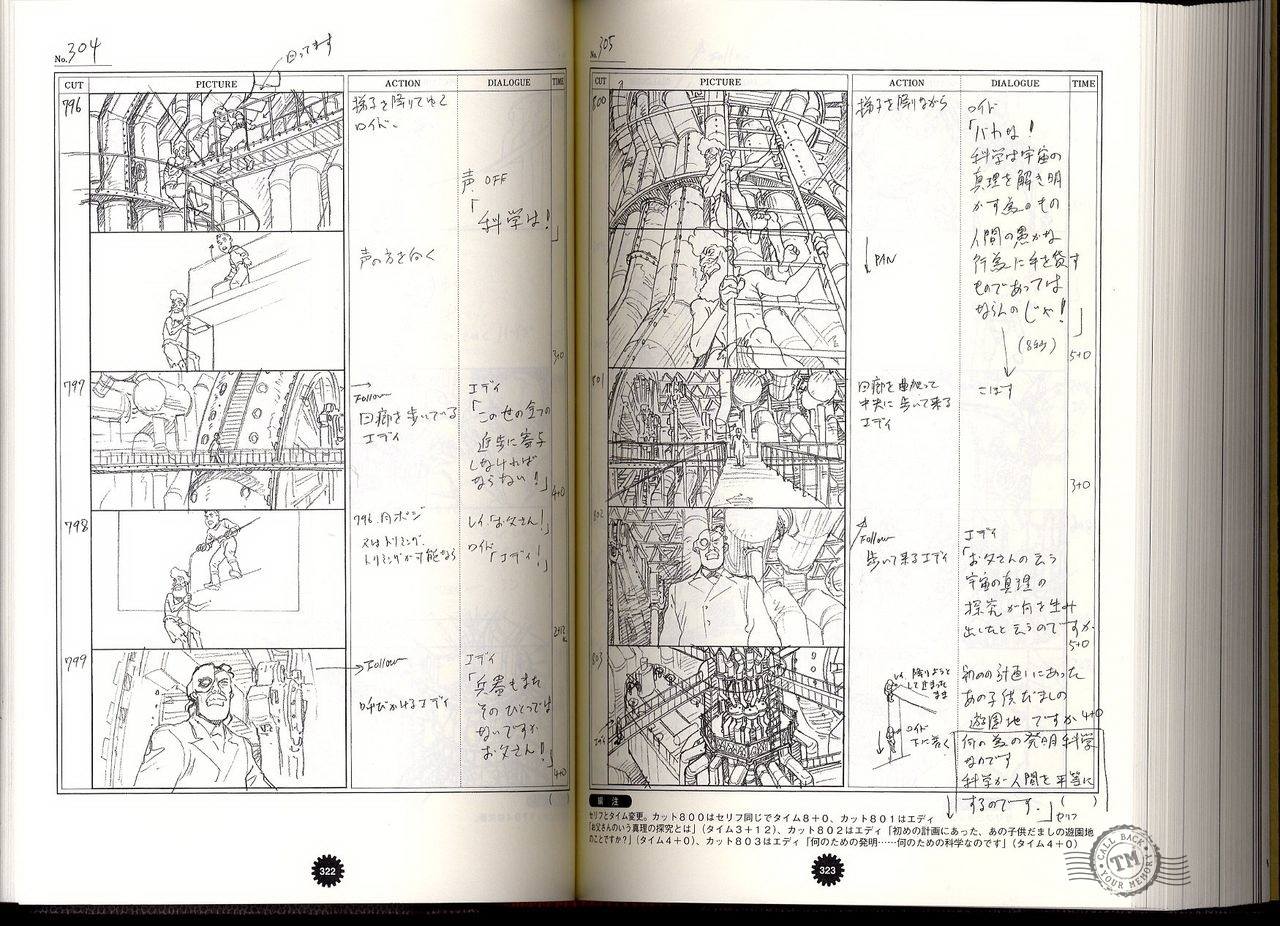 No. 304
回ってます
CUT
PICTURE
ACTION
DIALOGUE
TIME
796
梯子を降りてゆく
ロイド。
声 OFF
「科学は!」
声の方を向く
3+0
797
Follow
回廊を歩いている
エディ
エディ
「この世の全ての
進歩に寄与
しなければ
ならない!」
4+0
798
796.同ポジ
又はトリミング.
トリミングが可能なら
レイ.「お父さん!」
ロイド
「エディ!」
2+12
799
Follow
呼びかけるエディ
エディ
「兵器もまた
そのひとつでは
ないですか
お父さん!」
4+0
322
No. 305
CUT
PICTURE
ACTION
DIALOGUE
TIME
800
梯子を降りながら
PAN
ロイド
「バカな!
科学は宇宙の
真理を解き明
かす為のもの
人間の愚かな
行為に手を貸す
ものであっては
ならんのじゃ!」
(8秒)
5+0
こぼす
801
回廊を曲がって
中央に歩いて来る
エディ
3+0
802
Follow
歩いて来るエディ
エディ
「お父さんの云う
宇宙の真理の
探究が何を生み
出したと云うのですか.
5+0
803
レイ.降りようと
して止まった
まま
ロイド
下に着く
エディ
初めの計画にあった
あの子供だましの
遊園地ですか
4+0
何の為の発明科学
なのです
科学が人間を平等に
するのです.」
セリフ
編 注
セリフとタイム変更。カット800はセリフ同じでタイム8+0、カット801はエディ
「お父さんのいう真理の探究とは」(タイム3+12)、カット802はエディ「初めの計画にあった、あの子供だましの遊園地
のことですか?」(タイム4+0)、カット803はエディ「何のための発明……何のための科学なのです」(タイム4+0)
323
CALL BACK
TM
YOUR MEMORY